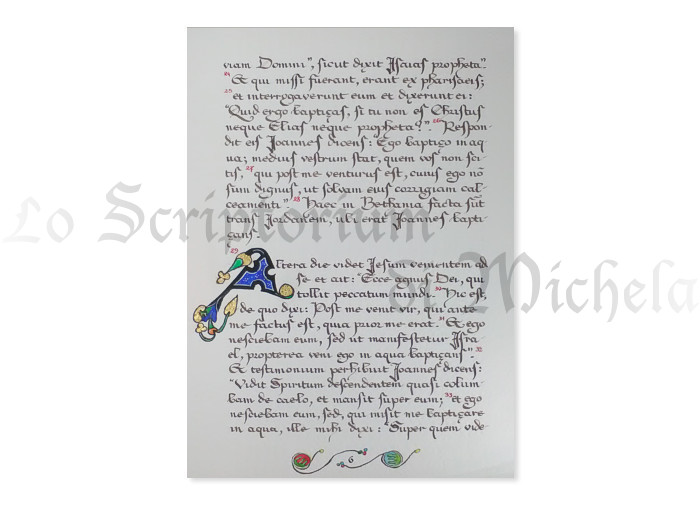 viam Domini", sicut dixit Isaias propheta".
24 Et qui missi fuerant, erant ex pharisaeis;
25 et interrogaverunt eum et dixerunt ei:
"Quid ergo baptiças, si tu non es Christus
neque Elias neque propheta?". 26 Respon-
dit eis Joannes dicens: "Ego baptiço in aq
ua; medius vestrum stat, quem vos non sci-
tis, 27 qui post me venturus est, cuius ego nō
sum dignus, ut solvam eius corrigiam cal-
ceamenti". 28 Haec in Bethania facta sūt
trans Jordanem, ubi erat Joannes bapti-
çans.
29
Altera die videt Jesum venientem ad
se et ait: "Ecce agnus Dei, qui
tollit peccatum mundi. 30 Hic est,
de quo dixi: Post me venit vir, qui ante
me factus est, quia prior me erat. 31 Et ego
nesciebam eum, sed ut manifestetur Isra
el, propterea veni ego in aqua baptiçans". 32
Et testimonium perhibuit Joannes dicens:
"Vidit Spiritum descendentem quasi colum-
bam de caelo, et mansit super eum; 33 et ego
nesciebam eum, sed, qui misit me baptiçare
in aqua, ille mihi dixi: "Super quem vide-
6
Lo Scriptorium
di Michela